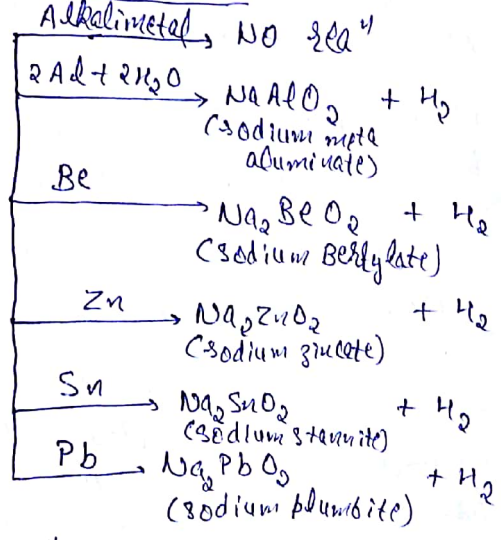 Alkalimetal → NO rea^n
2Al + 2H₂O → NaAlO₂ + H₂
(sodium meta
aluminate)
Be → Na₂BeO₂ + H₂
(sodium Berlylate)
Zn → Na₂ZnO₂ + H₂
(sodium zincate)
Sn → Na₂SnO₂ + H₂
(sodium stannite)
Pb → Na₂PbO₂ + H₂
(sodium plumbite)